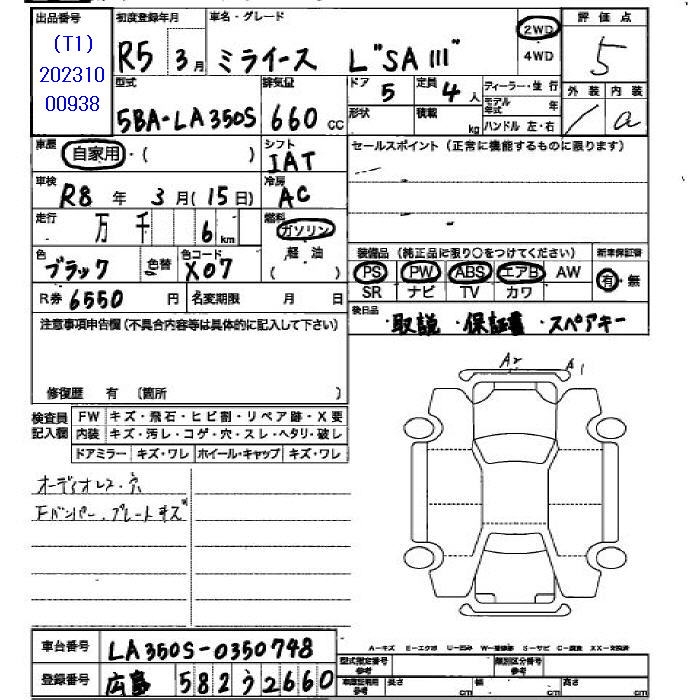 出品番号 初度登録年月 車名・グレード 評価点
(T1) R5 3月 ミライース L"SAⅢ" 2WD 4WD 5
202310
00938
型式 排気量 ドア 5 定員 4人 ディーラー・並行 外装 内装
5BA-LA350S 660cc 形状 積載 kg モデル年式 年 ハンドル 左・右 a
車歴 自家用・( ) シフト IAT セールスポイント (正常に機能するものに限ります)
車検 R8年 3月(15日) 冷房 AC
走行 万 千 6km 燃料 ガソリン
軽・油
( )
色 ブラック 色替 色コード X07
装備品 (純正品に限り○をつけてください) 新車保証書
PS PW ABS エアB AW 有・無
SR ナビ TV カワ
R券 6550円 名変期限 月 日
後日品 ・取説 ・保証書 ・スペアキー
注意事項申告欄(不具合内容等は具体的に記入して下さい)
修復歴 有 〔箇所 )
A2 A1
検査員記入欄 FW キズ・飛石・ヒビ割・リペア跡・X要
内装 キズ・汚レ・コゲ・穴・スレ・ヘタリ・破レ
ドアミラー キズ・ワレ ホイール・キャップ キズ・ワレ
オーディオレス・穴
Fバンパー、プレートキズ
車台番号 LA350S-0350748
登録番号 広島 582う2660
A-キズ E-エクボ U-凹み
型式指定番号 参考 類別区分番号 参考
長さ cm 幅 cm 高さ cm